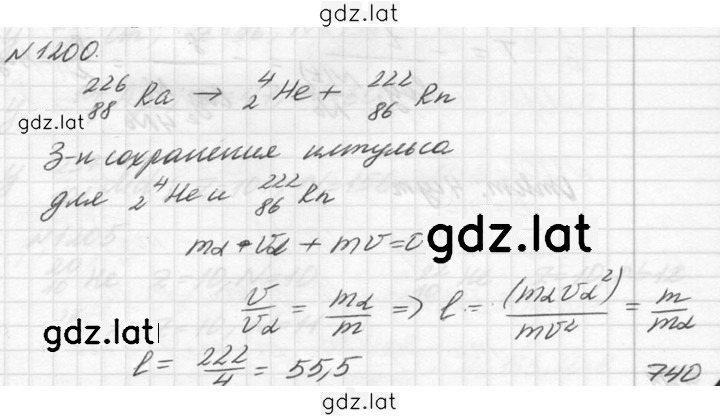 gdz.lat
N 1200.
²²⁶₈₈Ra → ⁴₂He + ²²²₈₆Rn
gdz.lat
З-н сохранения импульса
для ⁴₂He и ²²²₈₆Rn
mα • vα + mv = 0 gdz.lat
v/vα = mα/m => l = (mαvα²)/mv² = m/mα
gdz.lat
l = 222/4 = 55,5
740
gdz.lat